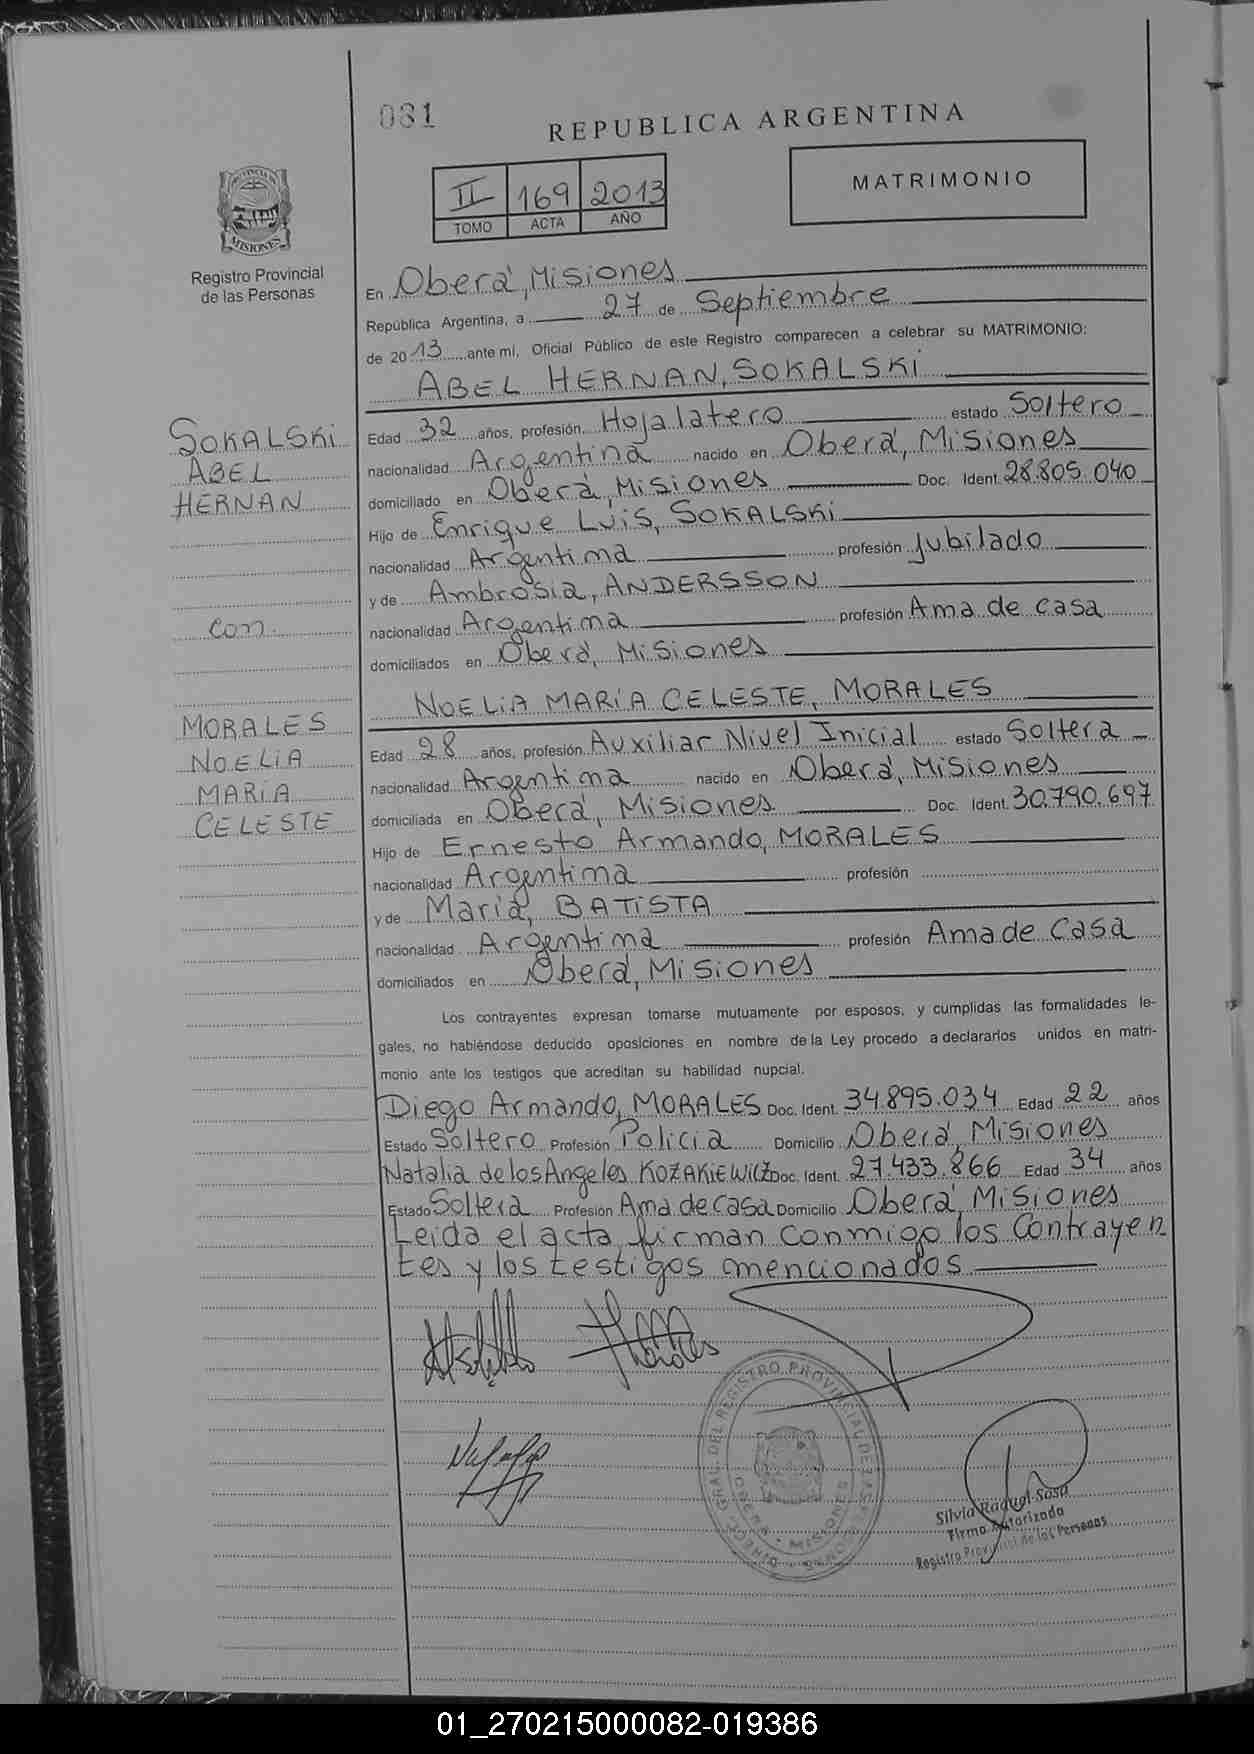 081
REPUBLICA ARGENTINA
MATRIMONIO
II 169 2013
TOMO ACTA AÑO
PROVINCIA DE
MISIONES
Registro Provincial
de las Personas
En Oberá, Misiones
República Argentina, a 27 de Septiembre
de 2013 ante mí, Oficial Público de este Registro comparecen a celebrar su MATRIMONIO:
ABEL HERNAN, SOKALSKI
SOKALSKI
ABEL
HERNAN
con
MORALES
NOELIA
MARÍA
CELESTE
Edad 32 años, profesión Hojalatero estado Soltero
nacionalidad Argentina nacido en Oberá, Misiones
domiciliado en Oberá, Misiones Doc. Ident. 28.805.040
Hijo de Enrique Luis, SOKALSKI
nacionalidad Argentina profesión Jubilado
y de Ambrosia, ANDERSSON
nacionalidad Argentina profesión Ama de casa
domiciliados en Oberá, Misiones
NOELIA MARÍA CELESTE, MORALES
Edad 28 años, profesión Auxiliar Nivel Inicial estado Soltera
nacionalidad Argentina nacido en Oberá, Misiones
domiciliada en Oberá, Misiones Doc. Ident. 30.790.697
Hijo de Ernesto Armando, MORALES
nacionalidad Argentina profesión
y de María, BATISTA
nacionalidad Argentina profesión Ama de Casa
domiciliados en Oberá, Misiones
Los contrayentes expresan tomarse mutuamente por esposos, y cumplidas las formalidades le-
gales, no habiéndose deducido oposiciones en nombre de la Ley procedo a declararlos unidos en matri-
monio ante los testigos que acreditan su habilidad nupcial.
Diego Armando, MORALES Doc. Ident. 34.895.034 Edad 22 años
Estado Soltero Profesión Policía Domicilio Oberá, Misiones
Natalia de los Angeles KOZAKIEWICZ Doc. Ident. 27.433.866 Edad 34 años
Estado Soltera Profesión Ama de casa Domicilio Oberá, Misiones
Leída el acta, firman conmigo los Contrayen
tes y los testigos mencionados
DIREC. GRAL. DEL REGISTRO PROVINCIAL DE LAS PERSONAS
OBERA - MISIONES
Silvia Raquel Sosa
Firma Autorizada
Registro Provincial de las Personas
01_270215000082-019386